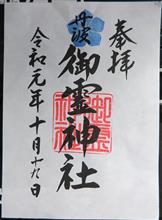 奉拝
丹波
御霊神社
令和元年十月十九日